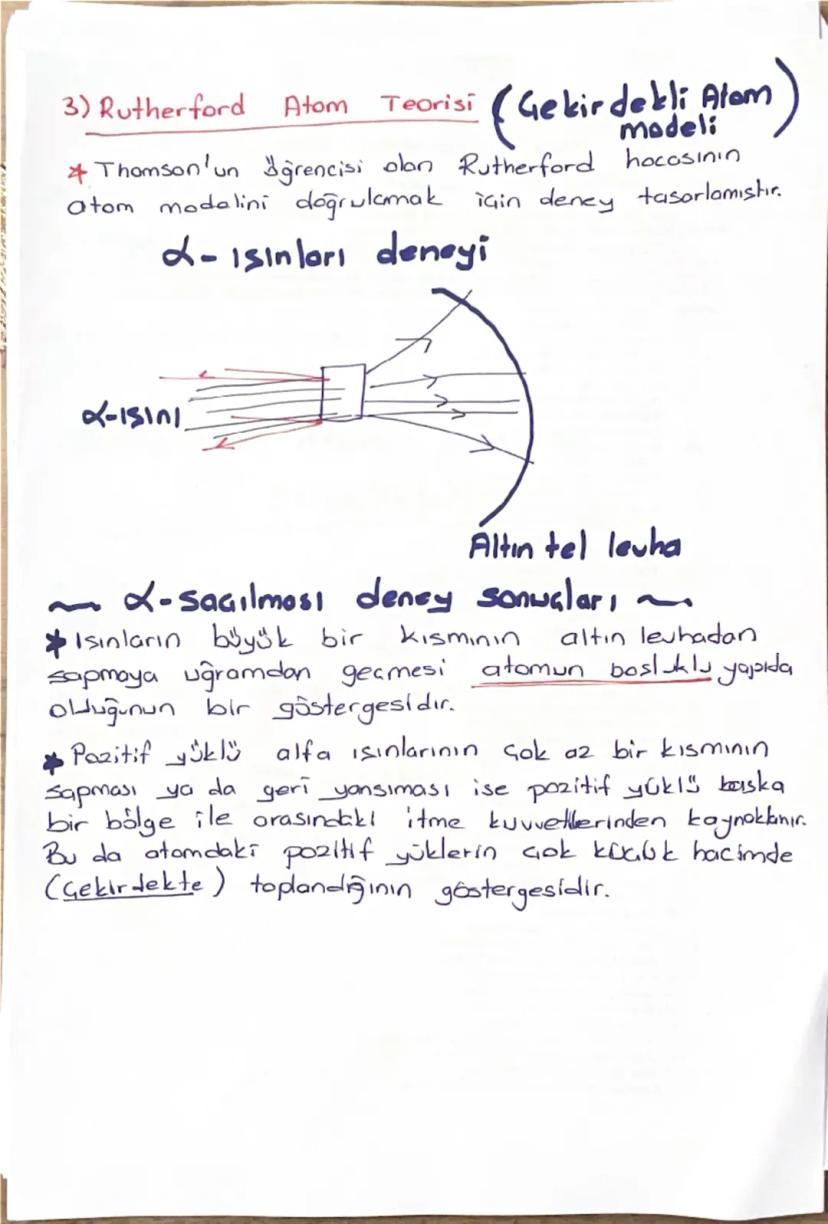 3) Rutherford Atom Teorisi (Çekirdekli Atom
modeli)
* Thomson'un öğrencisi olan Rutherford hocasının
atom modelini doğrulamak için deney tasarlamıştır.
α- ışınları deneyi
α-ışını
Altın tel levha
~ α-saçılması deney sonuçları ~
* Isınların büyük bir kısmının altın levhadan
sapmaya uğramdan geçmesi atomun boşluklu yapıda
olduğunun bir göstergesidir.
* Pozitif yüklü alfa ışınlarının çok az bir kısmının
sapması ya da geri yansıması ise pozitif yüklü başka
bir bölge ile arasındaki itme kuvvetlerinden kaynaklanır.
Bu da atomdaki pozitif yüklerin çok küçük hacimde
(Çekirdekte) toplandığının göstergesidir.